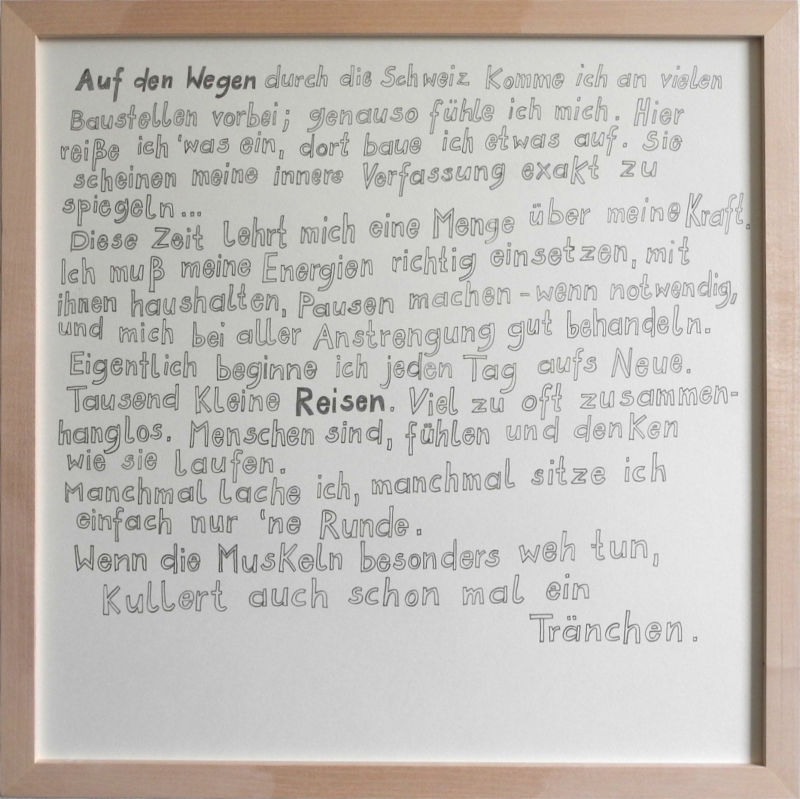 Auf den Wegen durch die Schweiz Komme ich an vielen
Baustellen vorbei; genauso fühle ich mich. Hier
reiße ich 'was ein, dort baue ich etwas auf. Sie
scheinen meine innere Verfassung exakt zu
spiegeln...
Diese Zeit lehrt mich eine Menge über meine Kraft.
Ich muß meine Energien richtig einsetzen, mit
ihnen haushalten, Pausen machen - wenn notwendig,
und mich bei aller Anstrengung gut behandeln.
Eigentlich beginne ich jeden Tag aufs Neue.
Tausend Kleine Reisen. Viel zu oft zusammen-
hanglos. Menschen sind, fühlen und denken
wie sie laufen.
Manchmal lache ich, manchmal sitze ich
einfach nur 'ne Runde.
Wenn die Muskeln besonders weh tun,
Kullert auch schon mal ein
Tränchen.